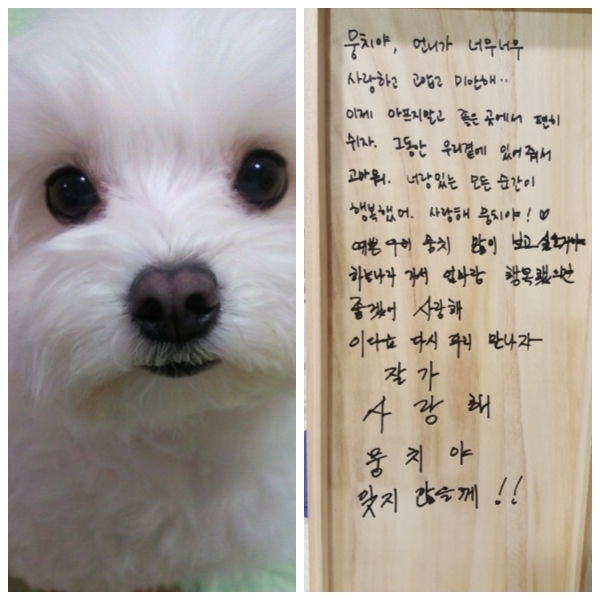 뭉치야, 언니가 너무너무
사랑하고 고맙고 미안해..
이제 아프지말고 좋은 곳에서 편히
쉬자. 그동안 우리곁에 있어줘서
고마워. 너랑있는 모든 순간이
행복했어. 사랑해 뭉치야! ♡
예쁜 우리 뭉치 많이 보고싶을거야
하늘나라 가서 엄마랑 행복했으면
좋겠어 사랑해
이다음 다시 꼭 만나자
잘 가
사 랑 해
뭉 치 야
잊지 않을께 !!